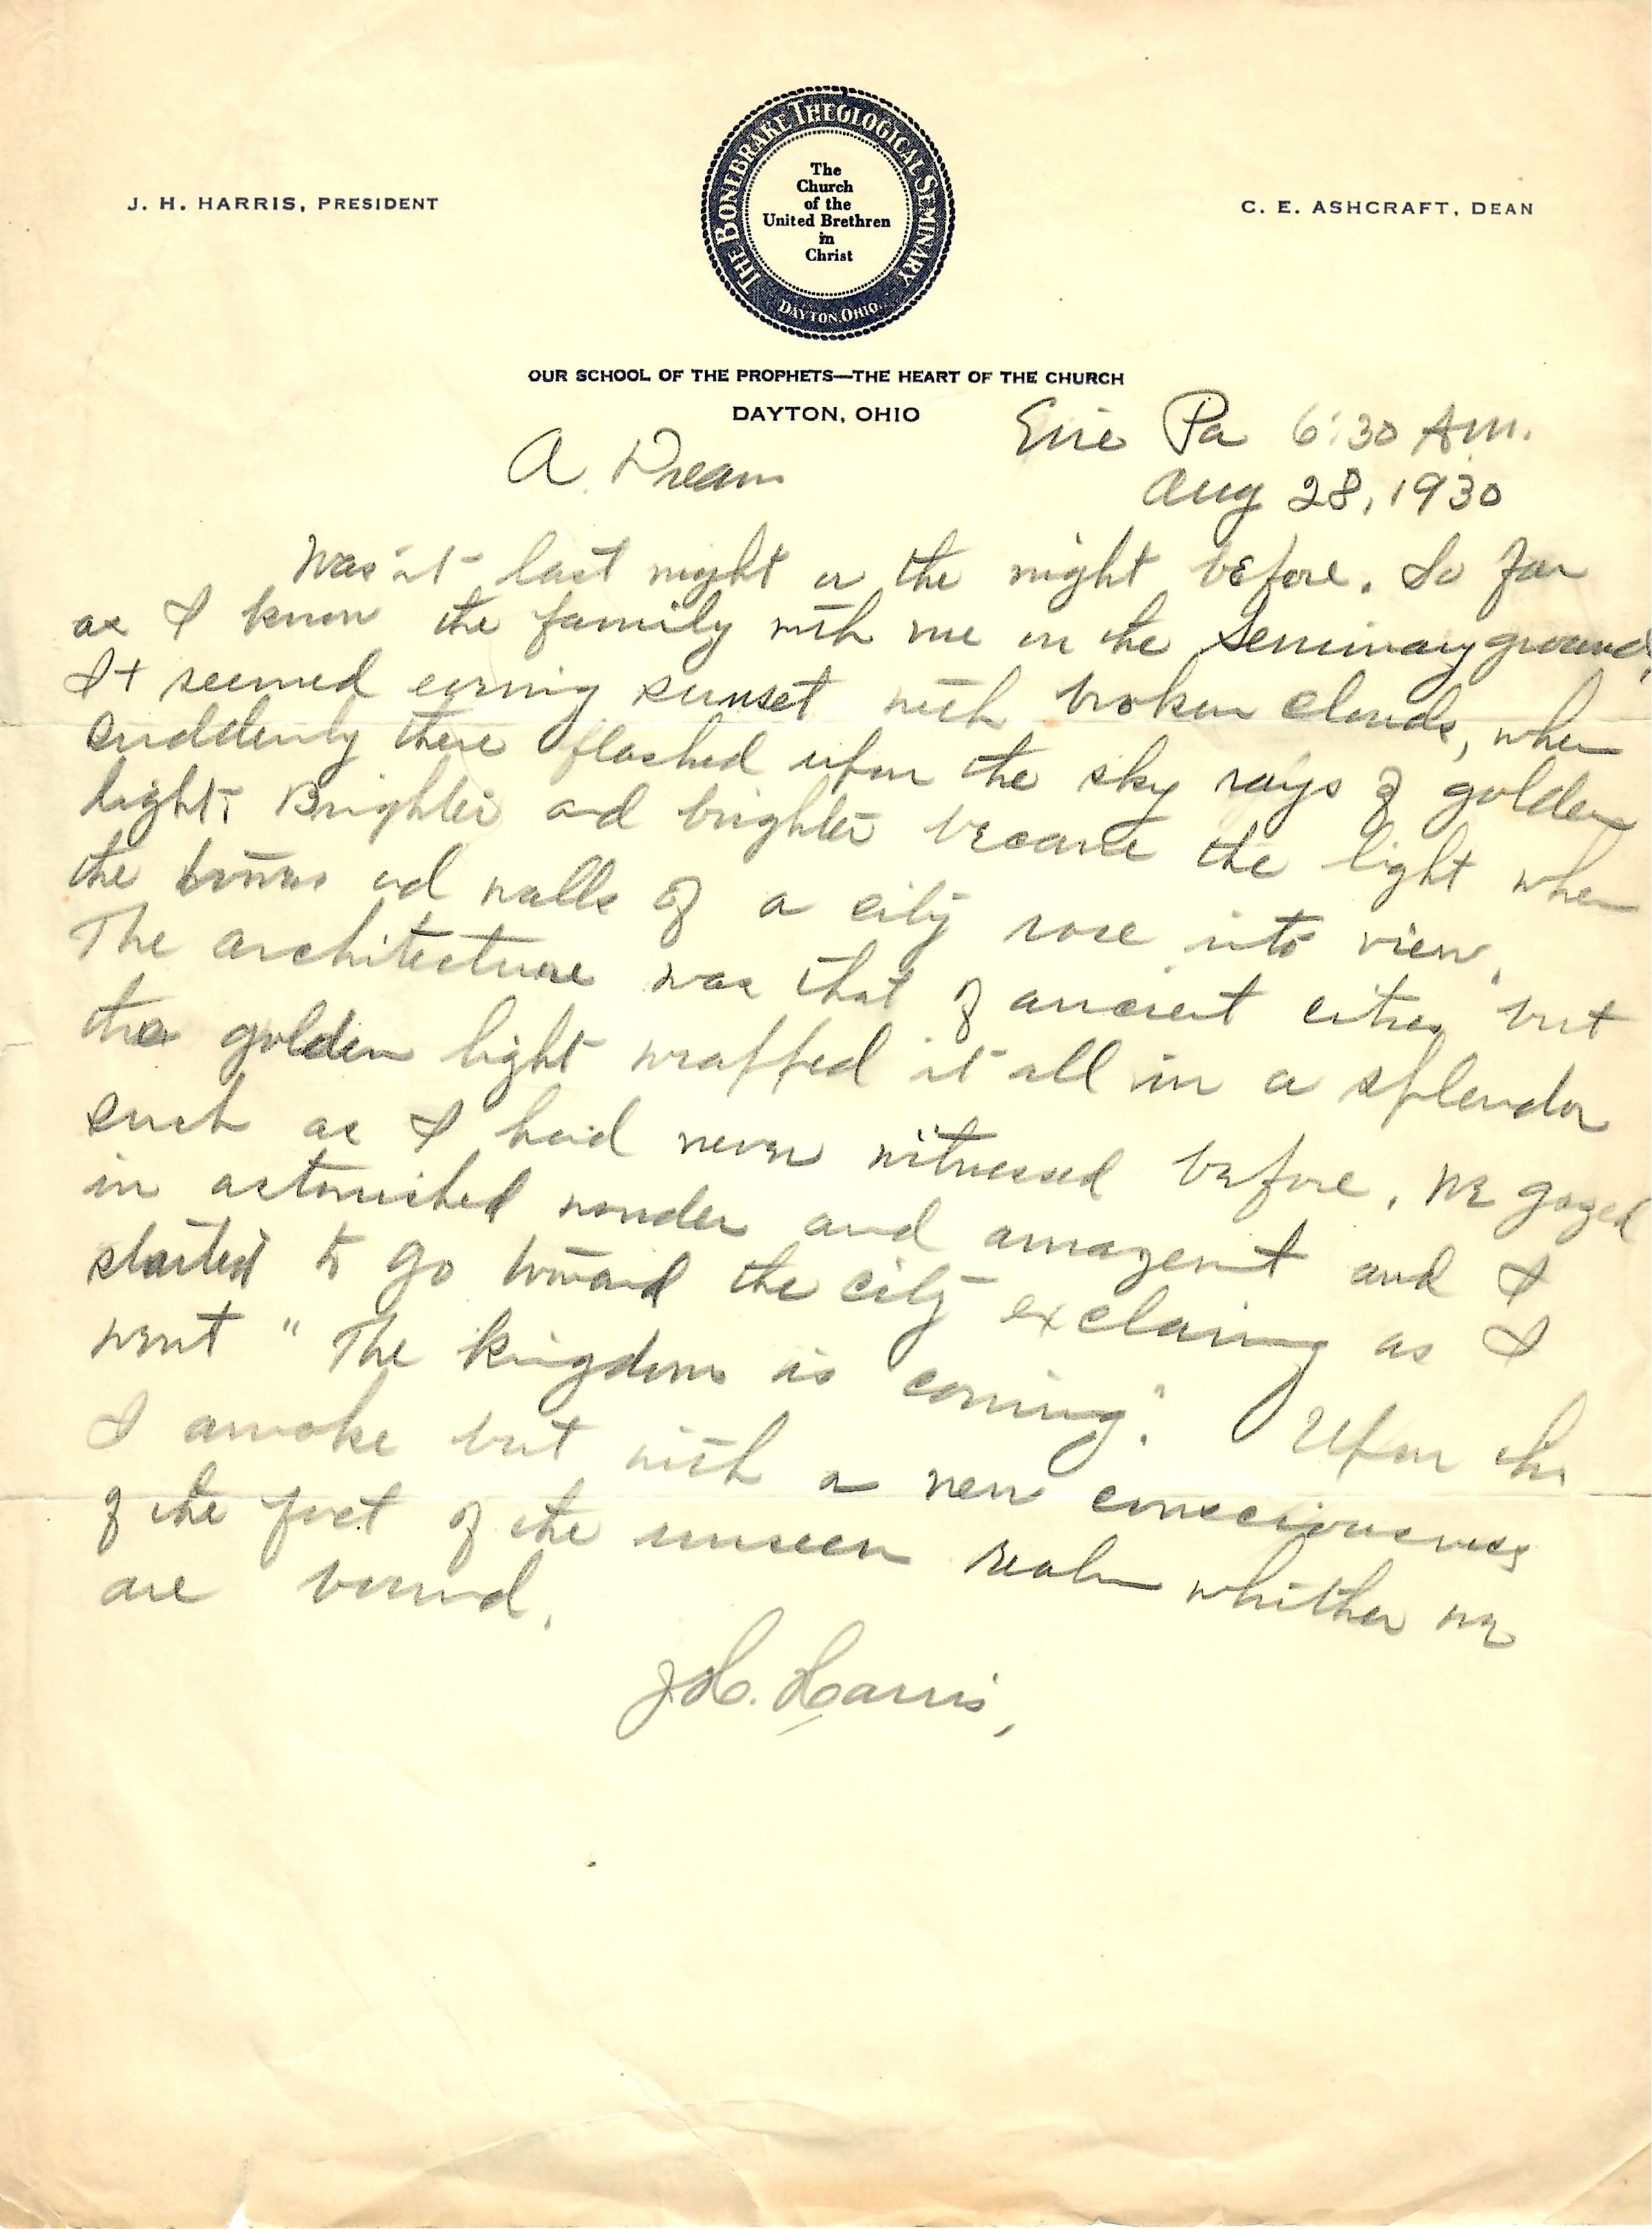 J. H. HARRIS, PRESIDENT
THE BONEBRAKE THEOLOGICAL SEMINARY
DAYTON, OHIO.
The
Church
of the
United Brethren
in
Christ
C. E. ASHCRAFT, DEAN
OUR SCHOOL OF THE PROPHETS—THE HEART OF THE CHURCH
DAYTON, OHIO
Erie Pa 6:30 A.M.
Aug 28, 1930
A Dream
Was it last night or the night before. So far
as I know the family with me on the Seminary ground,
It seemed evening sunset with broken clouds, when
suddenly there flashed upon the sky rays of golden
light. Brighter and brighter became the light when
the towers and walls of a city rose into view.
The architecture was that of ancient cities but
the golden light wrapped it all in a splendor
such as I had never witnessed before. We gazed
in astonished wonder and amazement and I
started to go toward the city exclaiming as I
went "The kingdom is coming". Upon this
I awoke but with a new consciousness
of the fact of the unseen realm whither we
are bound.
J.H. Harris,